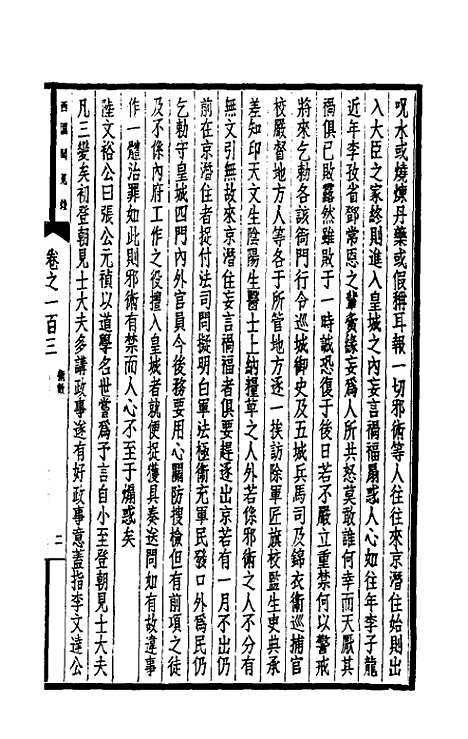 呪水或燒煉丹藥或假稱耳報一切邪術等人往往來京潛住始則出
入大臣之家終則進入皇城之內妄言禍福扇惑人心如往年李子龍
近年李孜省鄧常恩之輩夤緣妄爲人所共怒莫敢誰何幸而天厭其
禍俱已敗露然雖敗于一時誠恐復于後日若不嚴立重禁何以警戒
將來乞勅各該衙門行令巡城御史及五城兵馬司及錦衣衛巡捕官
校嚴督地方人等各于所管地方逐一挨訪除軍匠旗校監生吏典承
差知印天文生陰陽生醫士上納糧草之人外若係邪術之人不分有
無文引無故來京潛住妄言禍福者俱要趕逐出京若有一月不出仍
前在京潛住者捉付法司問擬明白軍法極衛充軍民發口外爲民仍
乞勅守皇城四門內外官員今後務要用心關防搜檢但有前項之徒
及不係內府工作之役擅入皇城者就便捉獲具奏送問如有故違事
作一體治罪如此則邪術有禁而人心不至于煽惑矣
陸文裕公曰張公元禎以道學名世嘗爲予言自小至登朝見士大夫
凡三變矣初登朝見士大夫多講政事遂有好政事意蓋指李文達公
西園聞見錄
卷之一百三
二